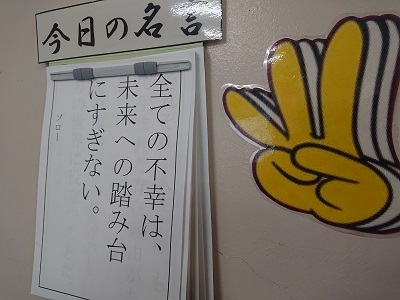 今日の名言
全ての不幸は、
未来への踏み台
にすぎない。
ソロー